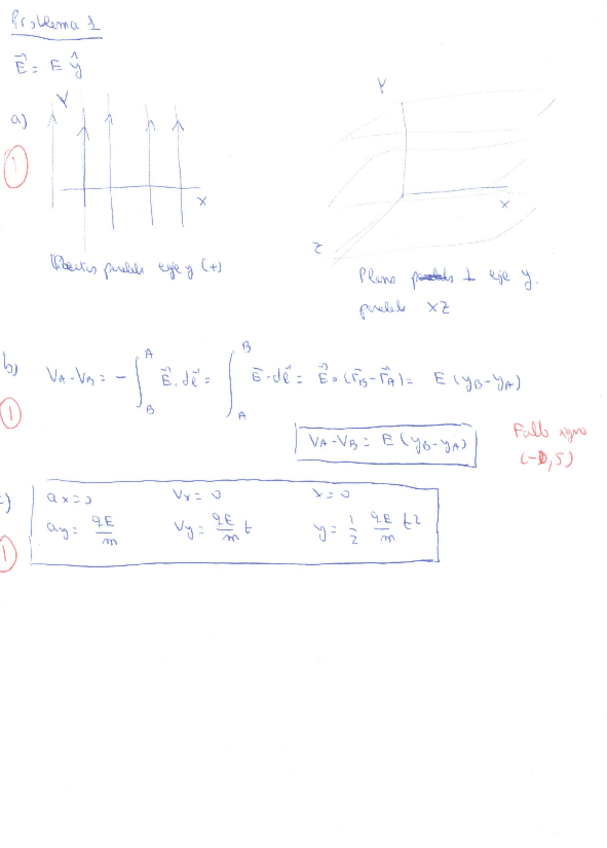 Problema 1
E⃗ = E ŷ
a)
1
Y
X
Rectas paralelas eje y (+)
Y
X
Z
Planos ⊥ eje y.
paralelo XZ
b)
1
V_A - V_B = - ∫_B^A E⃗ · dℓ⃗ = ∫_A^B E⃗ · dℓ⃗ = E⃗ · (r⃗_B - r⃗_A) = E (y_B - y_A)
V_A - V_B = E (y_B - y_A)
Fallo signo
(-0,5)
c)
1
a_x = 0 V_x = 0 x = 0
a_y = qE/m V_y = qE/m t y = 1/2 qE/m t²